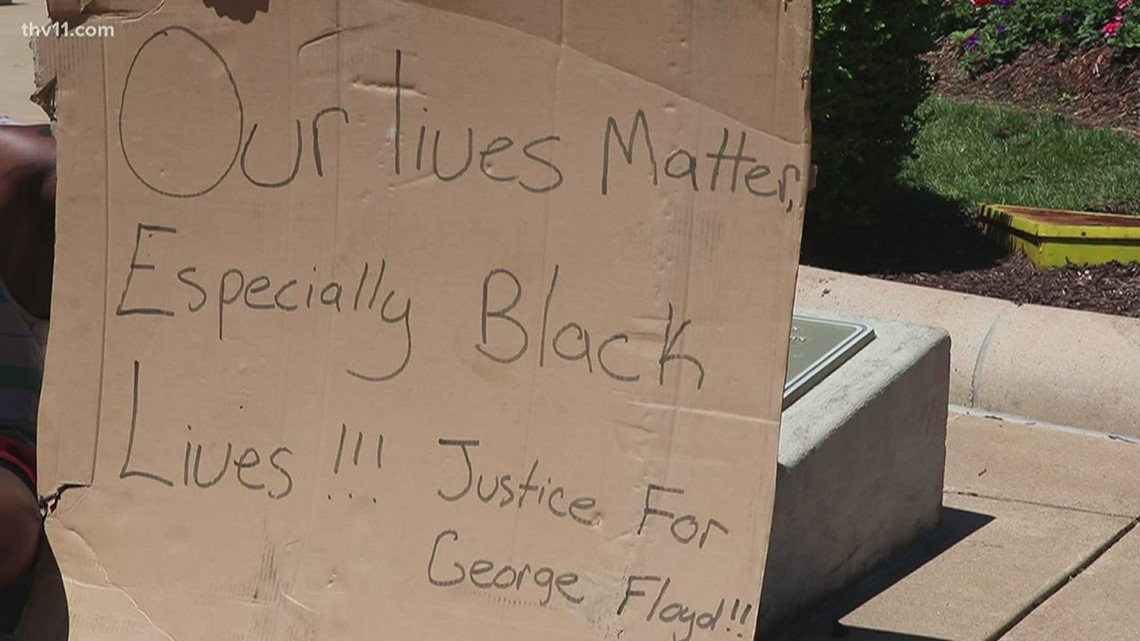 thv11.com
Our lives Matter,
Especially Black
Lives!!! Justice For
George Floyd!!